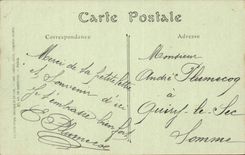 Carte Postale
Correspondance
Adresse
Merci de ta petite lettre
et Souvenir d'ici
Je t'embrasse bien fort
E Plumecoq
Monsieur
André Plumecoq
à
le Sec
Somme